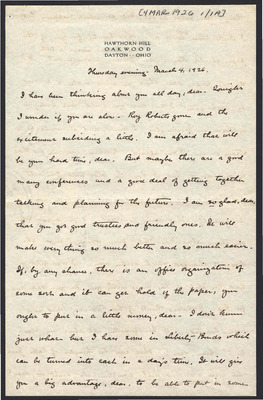 [4 MAR. 1926 1/14]
HAWTHORN HILL
OAKWOOD
DAYTON · OHIO
Thursday evening. March 4, 1926.
I have been thinking about you all day, dear. Tonight
I wonder if you are alone - Roy Roberts gone and the
excitement subsiding a little. I am afraid that will
be your hard time, dear. But maybe there are a good
many conferences and a good deal of getting together
talking and planning for the future. I am so glad, dear,
that you got good trustees and friendly ones. It will
make everything so much better and so much easier.
If, by any chance, there is an office organization of
some sort and it can get hold of the paper, you
ought to put in a little money, dear. I don't know
just what but I have some in Liberty Bonds which
can be turned into cash in a day's time. It will give
you a big advantage, dear, to be able to put in some